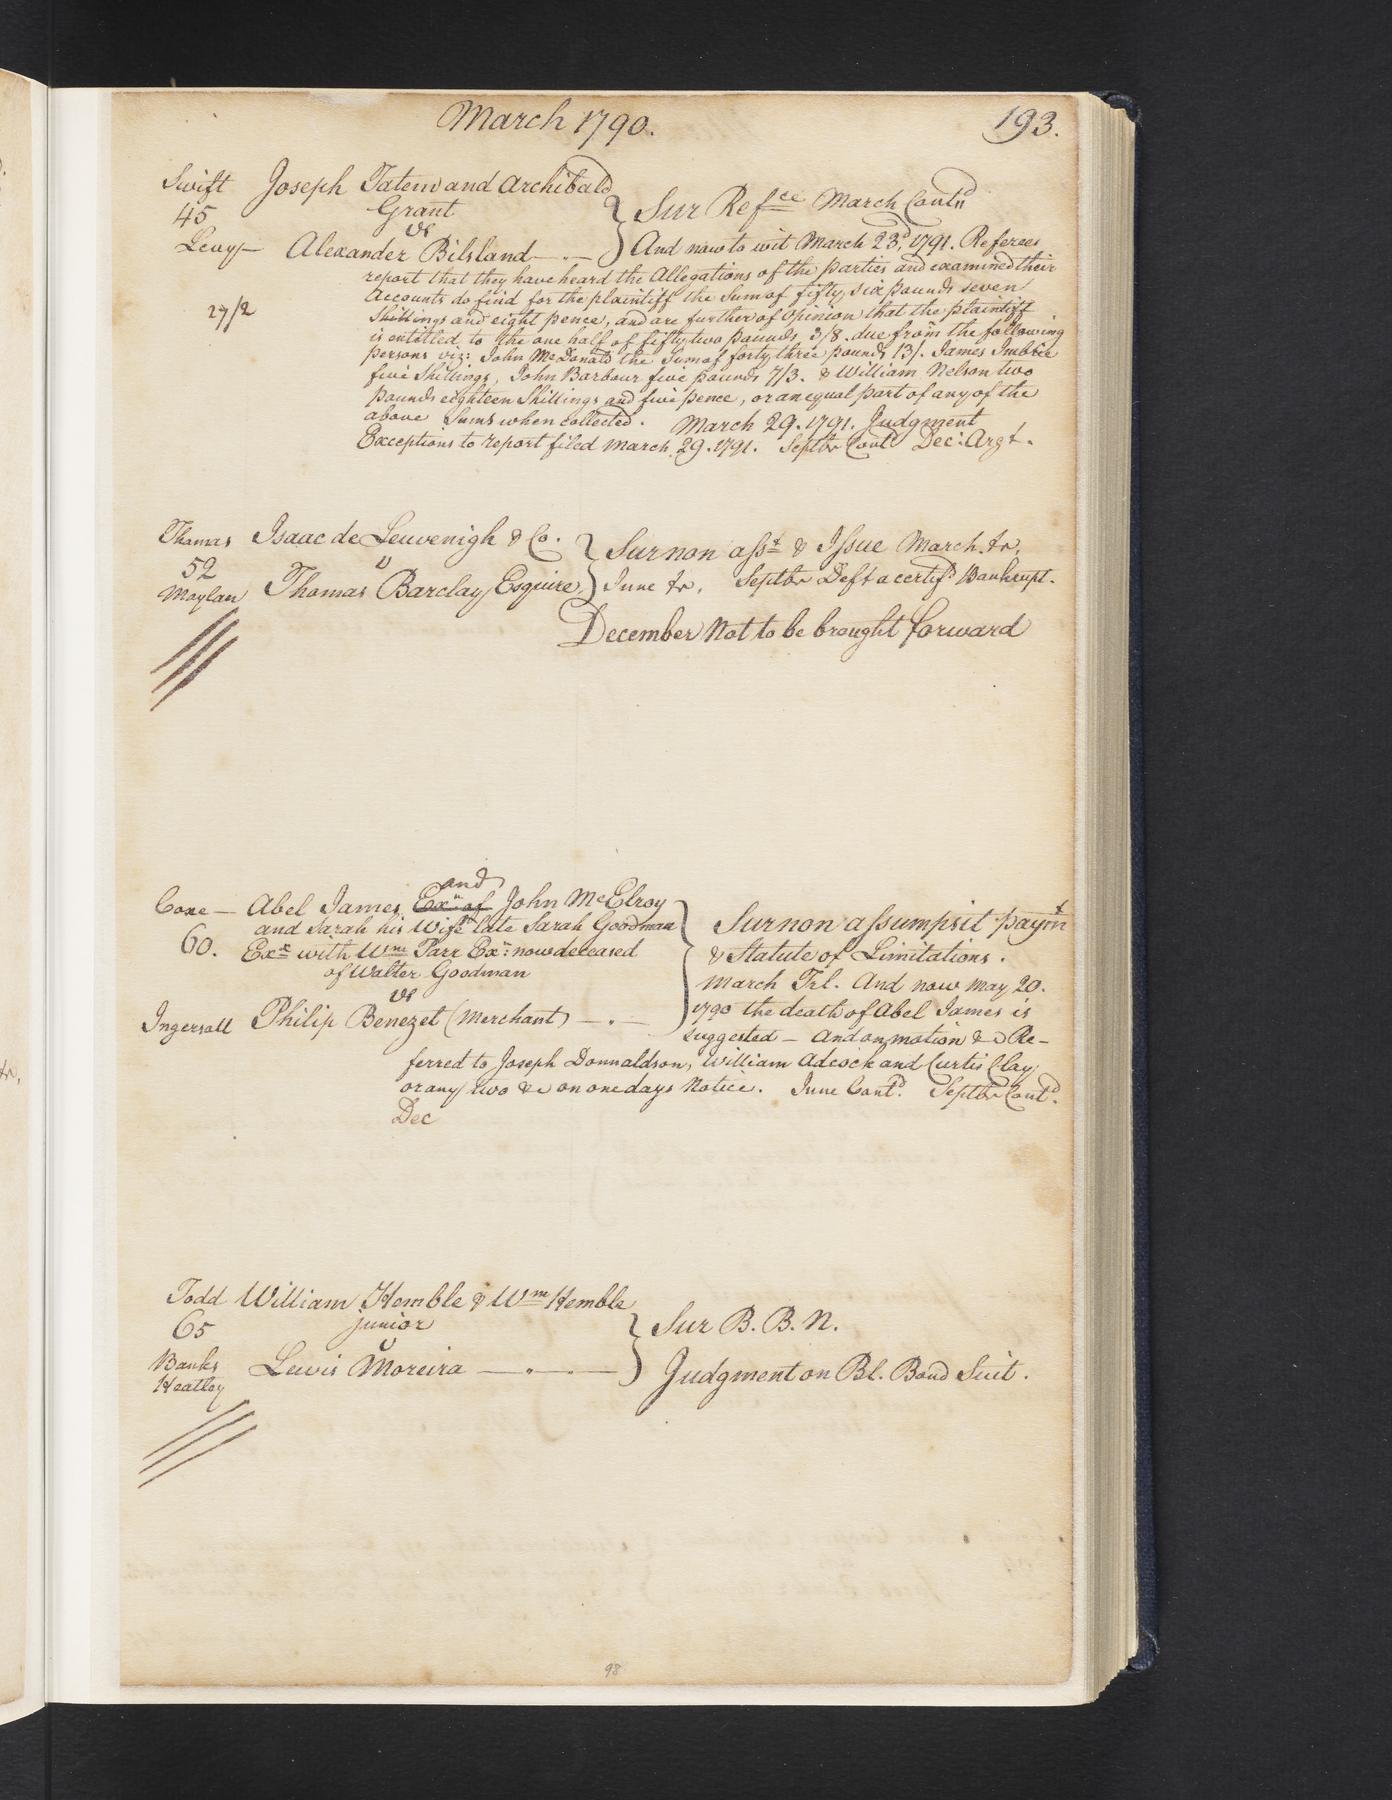 March 1790.
193.
Swift Joseph Tatem and Archibald
45 Grant
vs
Levy — Alexander Bilsland
Sur Refce March Contd
And now to wit March 23d, 1791. Referees
report that they have heard the Allegations of the parties and examined their
Accounts do find for the plaintiff the Sum of fifty six pounds seven
27/2
Shillings and eight pence, and are further of Opinion that the plaintiff
is entitled to the one half of fifty two pounds 3/8. due from the following
persons viz: John McDonald the Sum of forty three pounds 13/. James Imbrie
five Shillings, John Barbour five pounds 7/3. & William Nelson two
pounds eighteen Shillings and five pence, or an equal part of any of the
above Sums when collected. March 29. 1791. Judgment
Exceptions to report filed March 29. 1791. Septbr Contd Dec: Argt.
Thomas Isaac de Leuvenigh & Co.
52 v
Moylan Thomas Barclay Esquire
Sur non asst & Issue March tr.
June tr. Septbr Deft a certifd Bankrupt.
December Not to be brought forward
and
Coxe — Abel James Exr of John McElroy
and Sarah his Wife late Sarah Goodman
60. Exx with Wm Parr Exr: now deceased
of Walter Goodman
vs
Ingersoll Philip Benezet (Merchant)
Sur non assumpsit paymt
& Statute of Limitations.
March Trl. And now May 20.
1790 the death of Abel James is
suggested — And on motion &c Re-
ferred to Joseph Donnaldson, William Adcock and Curtis Clay
or any two &c on one days Notice. June Contd. Septbr Contd.
Dec
Todd William Hemble & Wm Hemble
65 junior
v
Banks Lewis Moreira
Heatley
Sur B. B. N.
Judgment on Bl. Bond Suit.
98